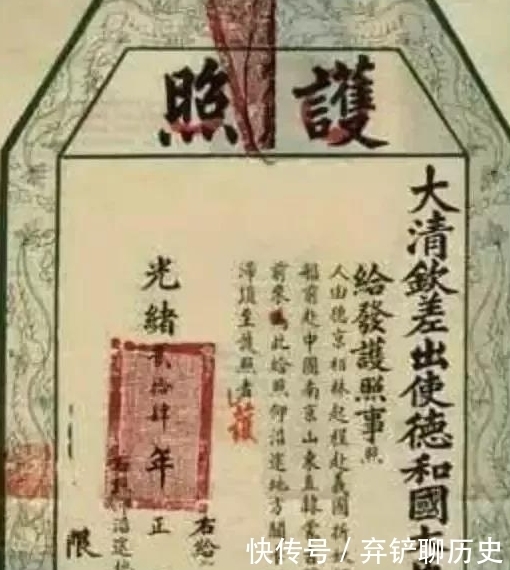 護照
大清欽差出使德和國大
給發護照事照
人由德京柏林起程赴義國
船前赴中國南京山東直隸
前來為此給照仰沿途地方關
滯須至護照者
護
光緒貳拾肆年正
右給
沿途
限
快传号 / 弃铲聊历史